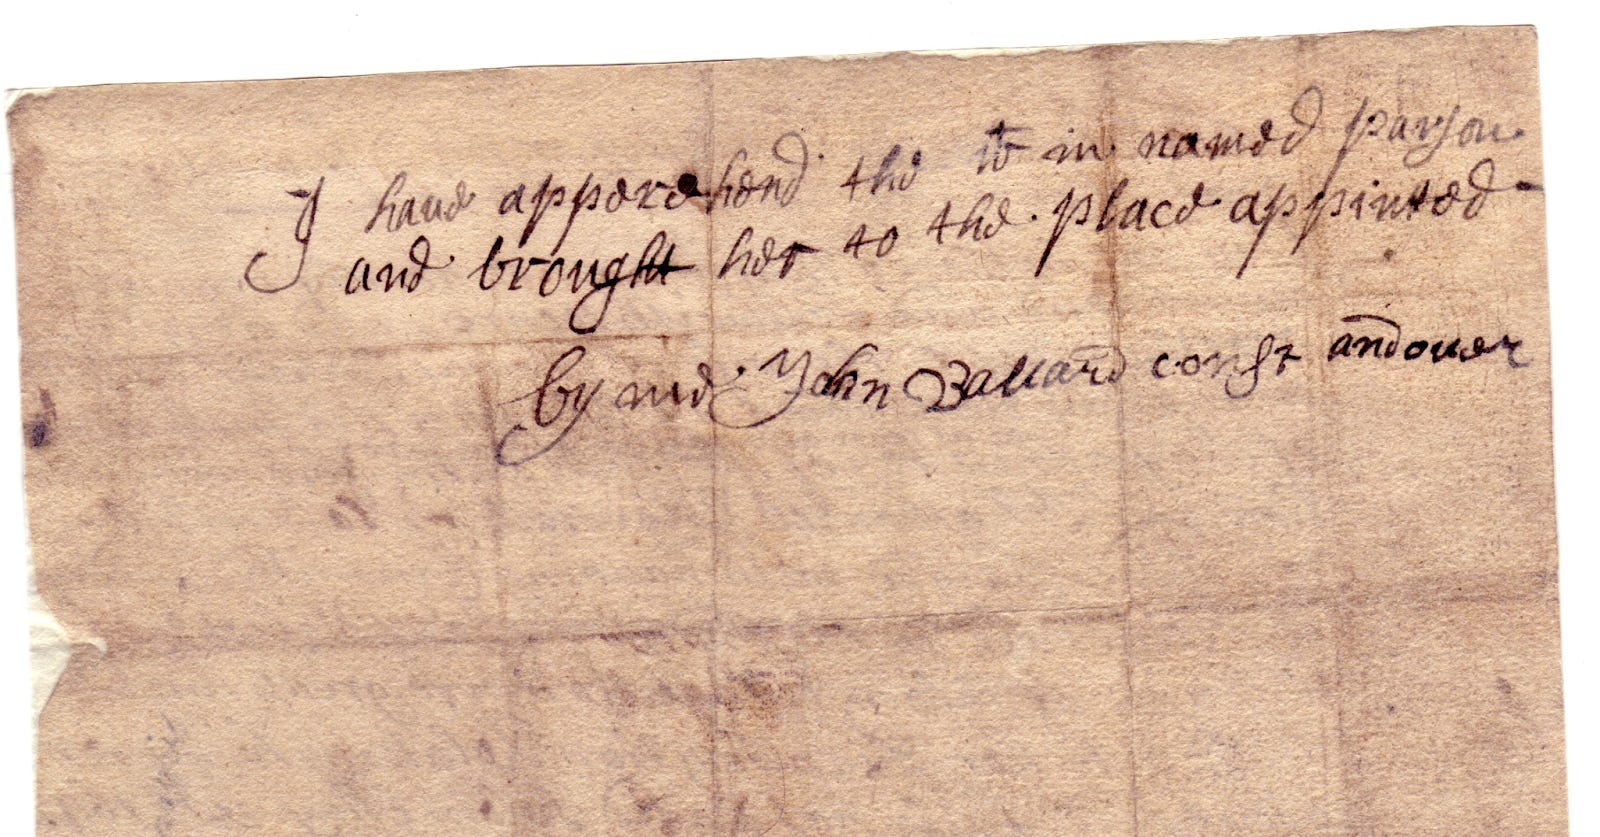 I have apperehend the wth in named parson
and brought her to the place appinted
by me John Ballard const andover